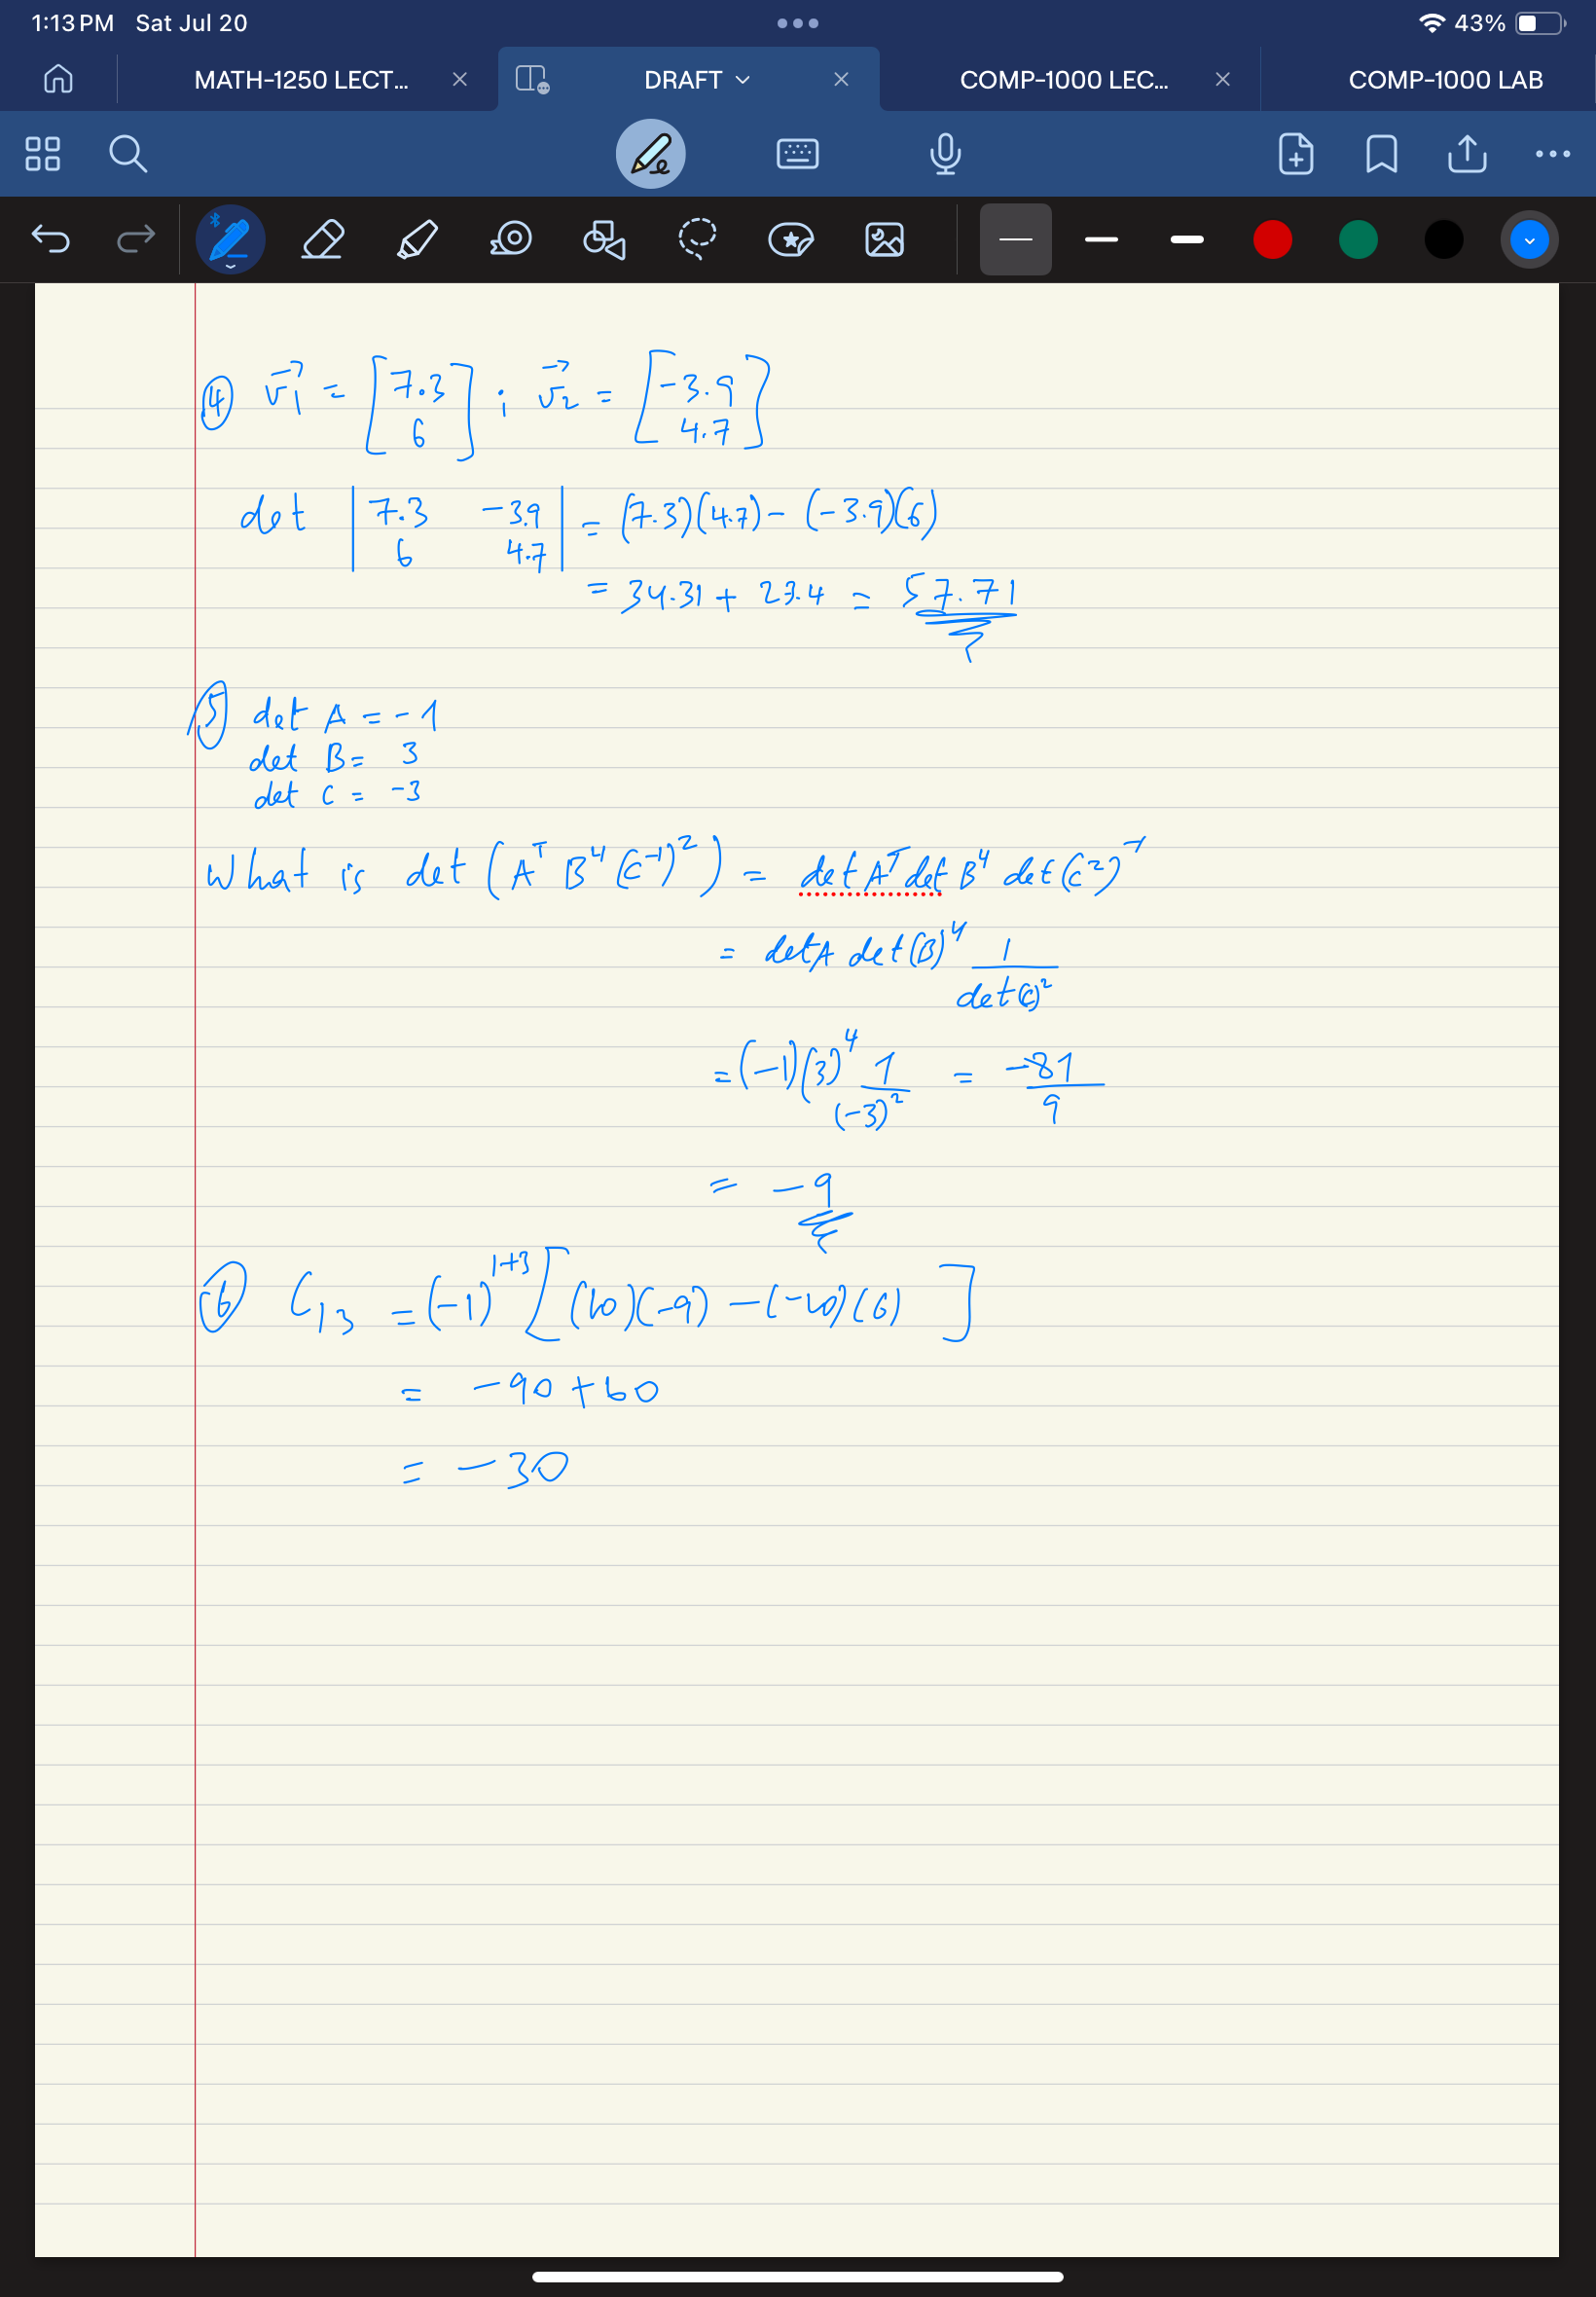 1:13 PM Sat Jul 20
43%
MATH-1250 LECT...
DRAFT
COMP-1000 LEC...
COMP-1000 LAB
④ v⃗₁ = [7.3 6] ; v⃗₂ = [-3.9 4.7]
det |7.3 -3.9| = (7.3)(4.7) - (-3.9)(6)
6 4.7
= 34.31 + 23.4 = 57.71
⑤ det A = -1
det B = 3
det C = -3
What is det (Aᵀ B⁴ (C⁻¹)²) = det Aᵀ det B⁴ det (C²)⁻¹
= det A det (B)⁴ 1/det(C)²
= (-1)(3)⁴ 1/(-3)² = -81/9
= -9
⑥ C₁₃ = (-1)¹⁺³ [(10)(-9) - (-10)(6)]
= -90 + 60
= -30